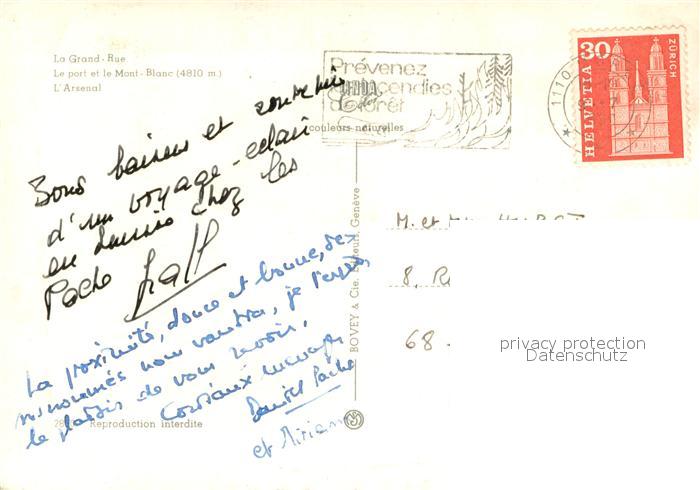 La Grand-Rue
Le port et le Mont-Blanc (4810 m.)
L'Arsenal
Prévenez
incendies
forêt
couleurs naturelles
1110
30
HELVETIA
ZÜRICH
Bons baisers et
d'un voyage-éclair
en chez les
Pache
La proximité, douce et bonne, des
nous vaudra, je l'espère,
le plaisir de vous revoir.
Cordiaux messages
Daniel Pache
et Miriam
BOVEY & Cie, Editeurs, Genève
Reproduction interdite
M. et
8, R
68.
privacy protection
Datenschutz